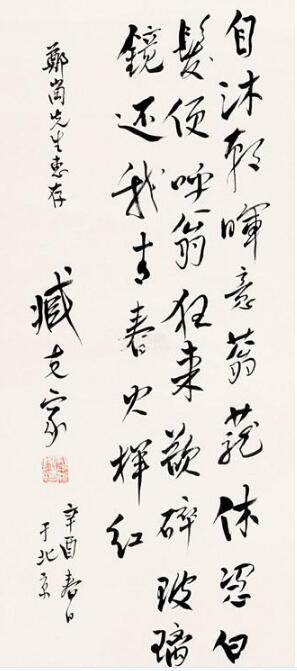 自沐朝晖意蓊茏休凭白
髪便呼翁狂来欲碎玻璃
镜还我青春火样红
鄭崗先生惠存
臧克家
辛酉春日
于北京